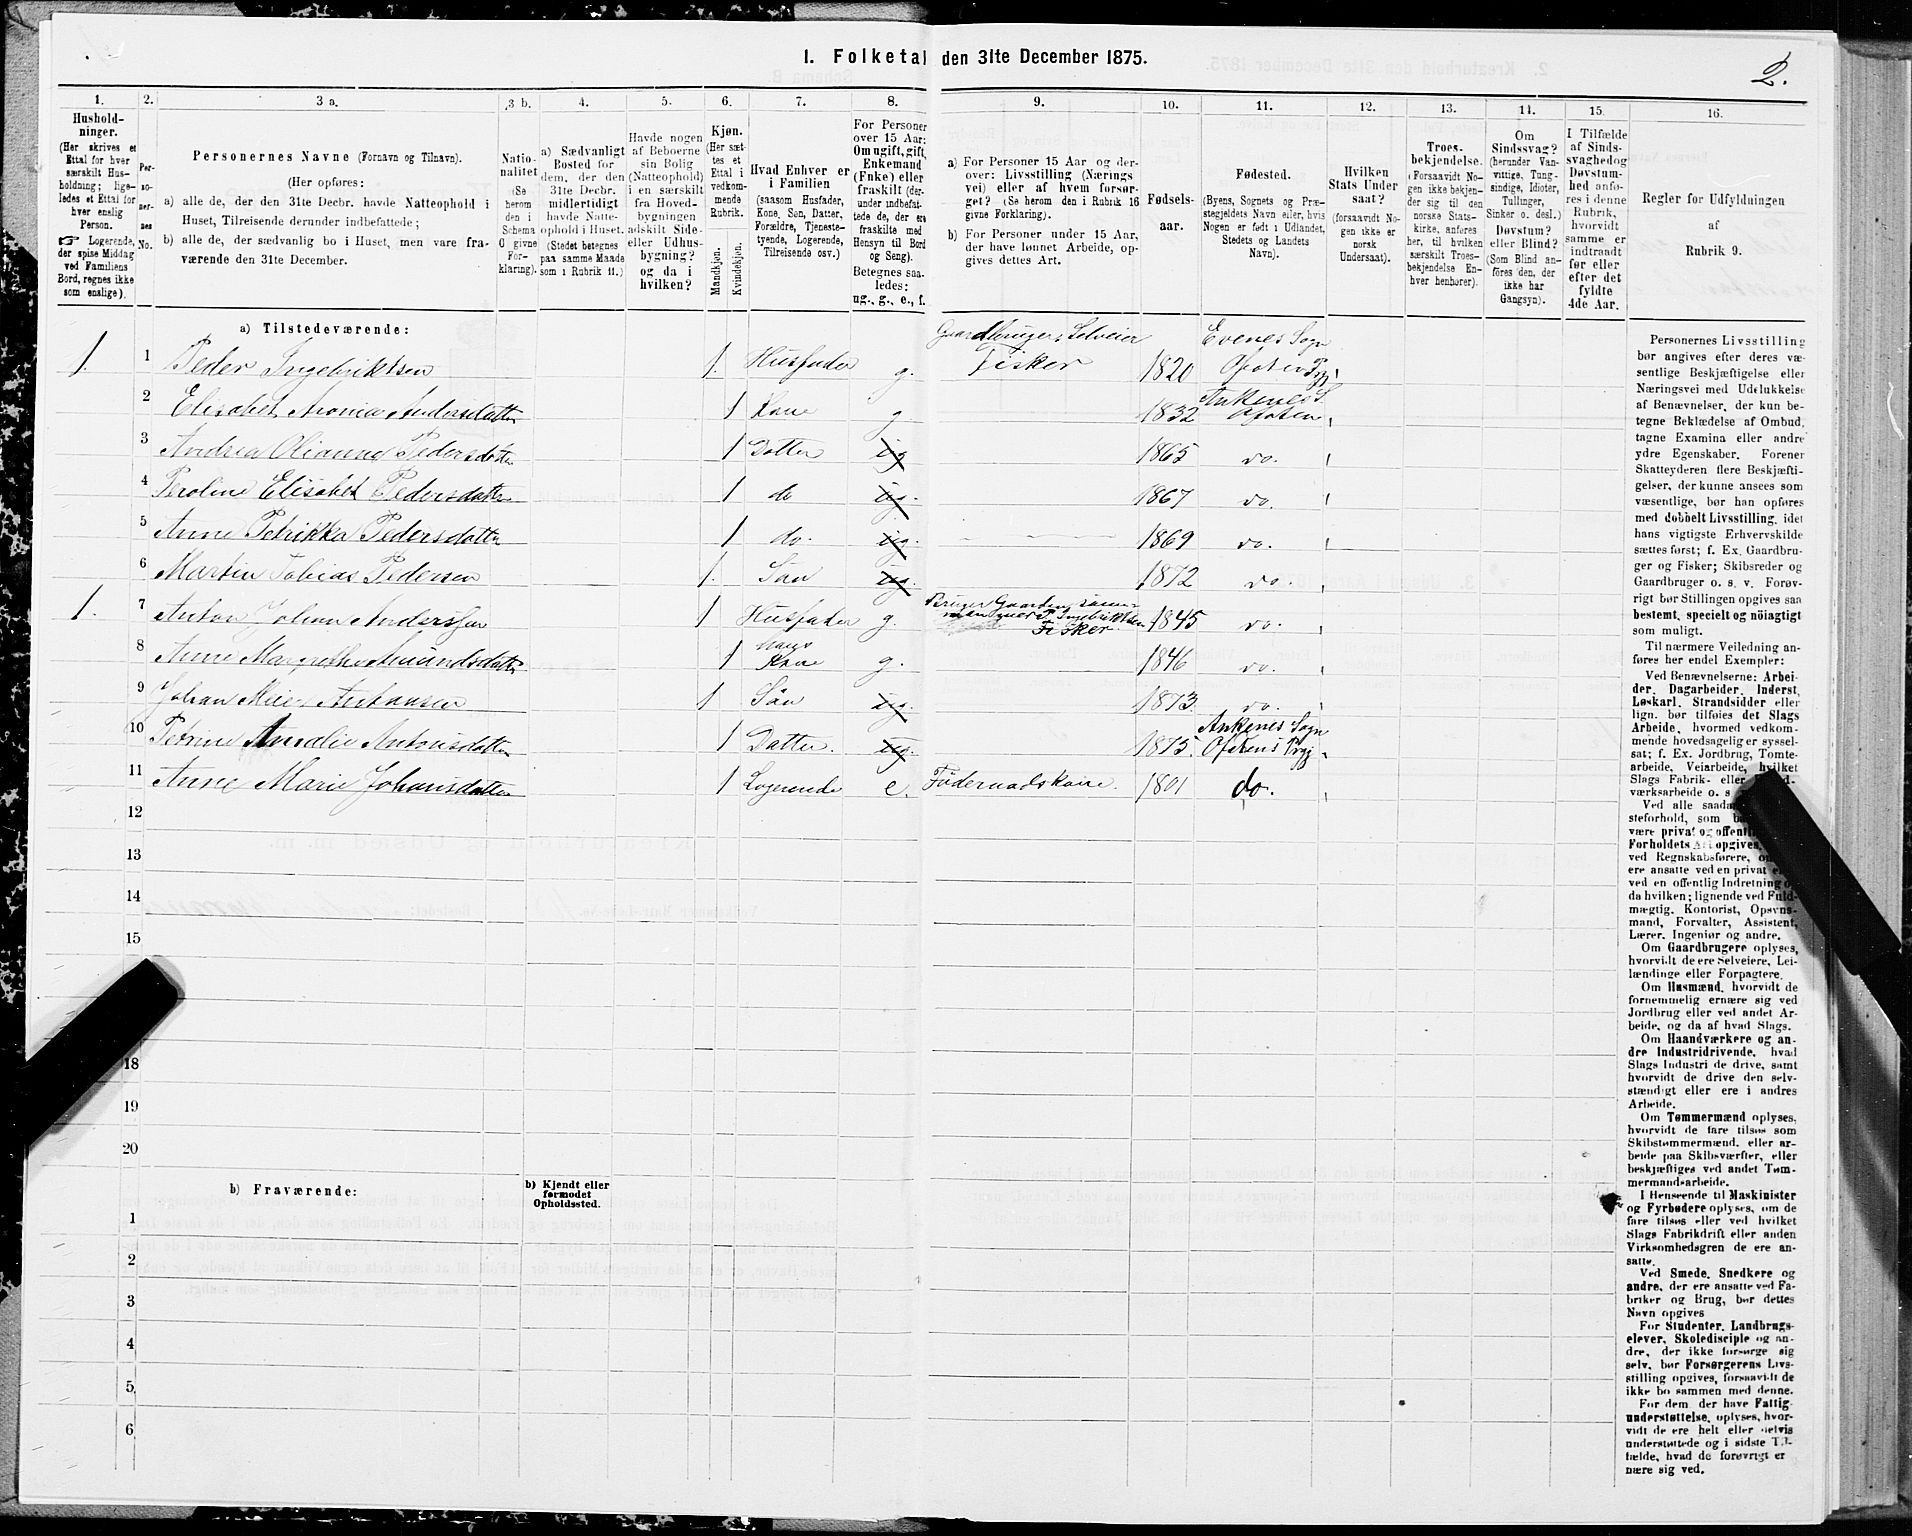 1. Folketal den 31te December 1875.
2.
1.
2.
3 a.
3 b.
4.
5.
6.
7.
8.
9.
10.
11.
12.
13.
14.
15.
16.
Hushold-
ninger.
(Her skrives et
Ettal for hver
særskilt Hus-
holdning; lige-
ledes et Ettal for
hver enslig
Person.
☞ Logerende,
der spise Middag
ved Familiens
Bord, regnes ikke
som enslige).
Per-
so-
ner-
nes
No.
Personernes Navne (Fornavn og Tilnavn).
(Her opføres:
a) alle de, der den 31te Decbr. havde Natteophold i
Huset, Tilreisende derunder indbefattede;
b) alle de, der sædvanlig bo i Huset, men vare fra-
værende den 31te December.
Natio-
nalitet
(Se
herom
den i
Schema
O givne
For-
klaring).
a) Sædvanligt
Bosted for
dem, der den
31te Decbr.
midlertidigt
havde Natte-
ophold i Huset.
(Stedet betegnes
paa samme Maade
som i Rubrik 11.)
Havde nogen
af Beboerne
sin Bolig
(Natteophold)
i en særskilt
fra Hoved-
bygningen
adskilt Side-
eller Udhus-
bygning?
og da i
hvilken?
Kjøn.
(Her sæt-
tes et
Ettal i
vedkom-
mende
Rubrik.
Mandkjøn.
Kvindekjøn.
Hvad Enhver er
i Familien
(saasom Husfader,
Kone, Søn, Datter,
Forældre, Tjeneste-
tyende, Logerende,
Tilreisende osv.)
For Personer
over 15 Aar:
Om ugift, gift,
Enkemand
(Enke) eller
fraskilt (der-
under indbefat-
tede de, der ere
fraskilte med
Hensyn til Bord
og Seng).
Betegnes saa-
ledes:
ug., g., e., f.
a) For Personer 15 Aar og der-
over: Livsstilling (Nærings
vei) eller af hvem forsør-
get? (Se herom den i Rubrik 16
givne Forklaring).
b) For Personer under 15 Aar,
der have lønnet Arbeide, op-
gives dettes Art.
Fødsels-
aar.
Fødested.
(Byens, Sognets og Præ-
stegjeldets Navn eller, hvis
Nogen er født i Udlandet,
Stedets og Landets
Navn).
Hvilken
Stats Under
saat?
(forsaavidt No-
gen ikke er
norsk
Undersaat).
Troes-
bekjendelse.
(Forsaavidt No-
gen ikke bekjen-
der sig til den
norske Stats-
kirke, anføres
her, til hvilken
særskilt Troes-
bekjendelse En-
hver henhører).
Om
Sindssvag?
(herunder Van-
vittige, Tung-
sindige, Idioter,
Tullinger,
Sinker o. desl.)
Døvstum?
eller Blind?
(Som Blind an-
føres den, der
ikke har
Gangsyn).
I Tilfælde
af Sinds-
svaghed og
Døvstum-
hed anfø-
res i denne
Rubrik,
hvorvidt
samme er
indtraadt
før eller
efter det
fyldte
4de Aar.
Regler for Udfyldningen
af
Rubrik 9.
a) Tilstedeværende:
1. 1 Peder Ingebriktsen 1. Husfader g. Gaardbruger, Selveier Fisker 1820 Evenes Sogn Ofoten Prgj
2 Elisabet Monica Andersdatter 1 Kone g 1832 Ankenes S. Ofoten
3 Andrea Olianna Pedersdatter 1 Datter ug 1865 do.
4 Peroline Elisabet Pedersdatter 1 do ug. 1867 do.
5 Anne Petrikka Pedersdatter 1 do. ug. 1869 do.
6 Martin Tobias Pedersen 1. Søn ug. 1872 do.
1. 7 Anton Johan Andersen 1 Husfader g. Bruger Gaarden sammen med P. Ingebriktsen Fisker 1845 do.
8 Anne Margrethe Amundsdatter 1 hans Kone g. 1846 do.
9 Johan Meier Antonsen 1 Søn ug. 1873 do.
10 Petrine Amalie Antonsdatter 1 Datter. ug. 1875. Ankenes Sogn Ofotens Prgj
11 Anne Marie Johansdatter 1 Logerende e. Føderaadskone. 1801 do.
12
13
14
15
18
19
20
b) Fraværende:
b) Kjendt eller
formodet
Opholdssted.
1
2
3
4
5
6
Personernes Livsstilling
bør angives efter deres væ-
sentlige Beskjæftigelse eller
Næringsvei med Udelukkelse
af Benævnelser, der kun be-
tegne Beklædelse af Ombud,
tagne Examina eller andre
ydre Egenskaber. Forener
Skatteyderen flere Beskjæfti-
gelser, der kunne ansees som
væsentlige, bør han opføres
med dobbelt Livsstilling, idet
hans vigtigste Erhvervskilde
sættes først; f. Ex. Gaardbru-
ger og Fisker; Skibsreder og
Gaardbruger o. s. v. Forøv-
rigt bør Stillingen opgives saa
bestemt, specielt og nöiagtigt
som muligt.
Til nærmere Veiledning an-
føres her endel Exempler:
Ved Benævnelserne: Arbei-
der, Dagarbeider, Inderst,
Løskarl, Strandsidder eller
lign. bør tilføies det Slags
Arbeide, hvormed vedkom-
mende hovedsagelig er syssel-
sat; f. Ex. Jordbrug, Tomte-
arbeide, Veiarbeide, hvilket
Slags Fabrik- eller
værksarbeide o. s
Ved alle saada
steforhold, som
være privat og offent
Forholdets Art opgives,
ved Regnskabsførere, om
ere ansatte ved en privat
ved en offentlig Indretning
da hvilken; lignende ved Fuld-
mægtig, Kontorist, Opsyns-
mand, Forvalter, Assistent,
Lærer, Ingeniør og andre.
Om Gaardbrugere oplyses,
hvorvidt de ere Selveiere, Lei-
lændinge eller Forpagtere.
Om Husmænd, hvorvidt de
fornemmelig ernære sig ved
Jordbrug eller ved andet Ar-
beide, og da af hvad Slags.
Om Haandværkere og an-
dre Industridrivende, hvad
Slags Industri de drive, samt
hvorvidt de drive den selv-
stændigt eller ere i andres
Arbeide.
Om Tømmermænd oplyses,
hvorvidt de fare tilsøs som
Skibstømmermænd, eller ar-
beide paa Skibsværfter, eller
beskjæftiges ved andet Tøm-
mermandsarbeide.
I Henseende til Maskinister
og Fyrbødere oplyses, om de
fare tilsøs eller ved hvilket
Slags Fabrikdrift eller anden
Virksomhedsgren de ere an-
satte.
Ved Smede, Snedkere og
andre, der ere ansatte ved Fa-
briker og Brug, bør dettes
Navn opgives
For Studenter, Landbrugs-
elever, Skoledisciple og an-
dre, der ikke forsørge sig
selv, bør Forsørgerens Livs-
stilling opgives, forsaavidt de
ikke bo sammen med denne.
For dem, der have Fattig
understøttelse, oplyses, hvor-
vidt de ere helt eller delvis
understøttede og i sidste Til-
fælde, hvad de forøvrigt er
nære sig ved.